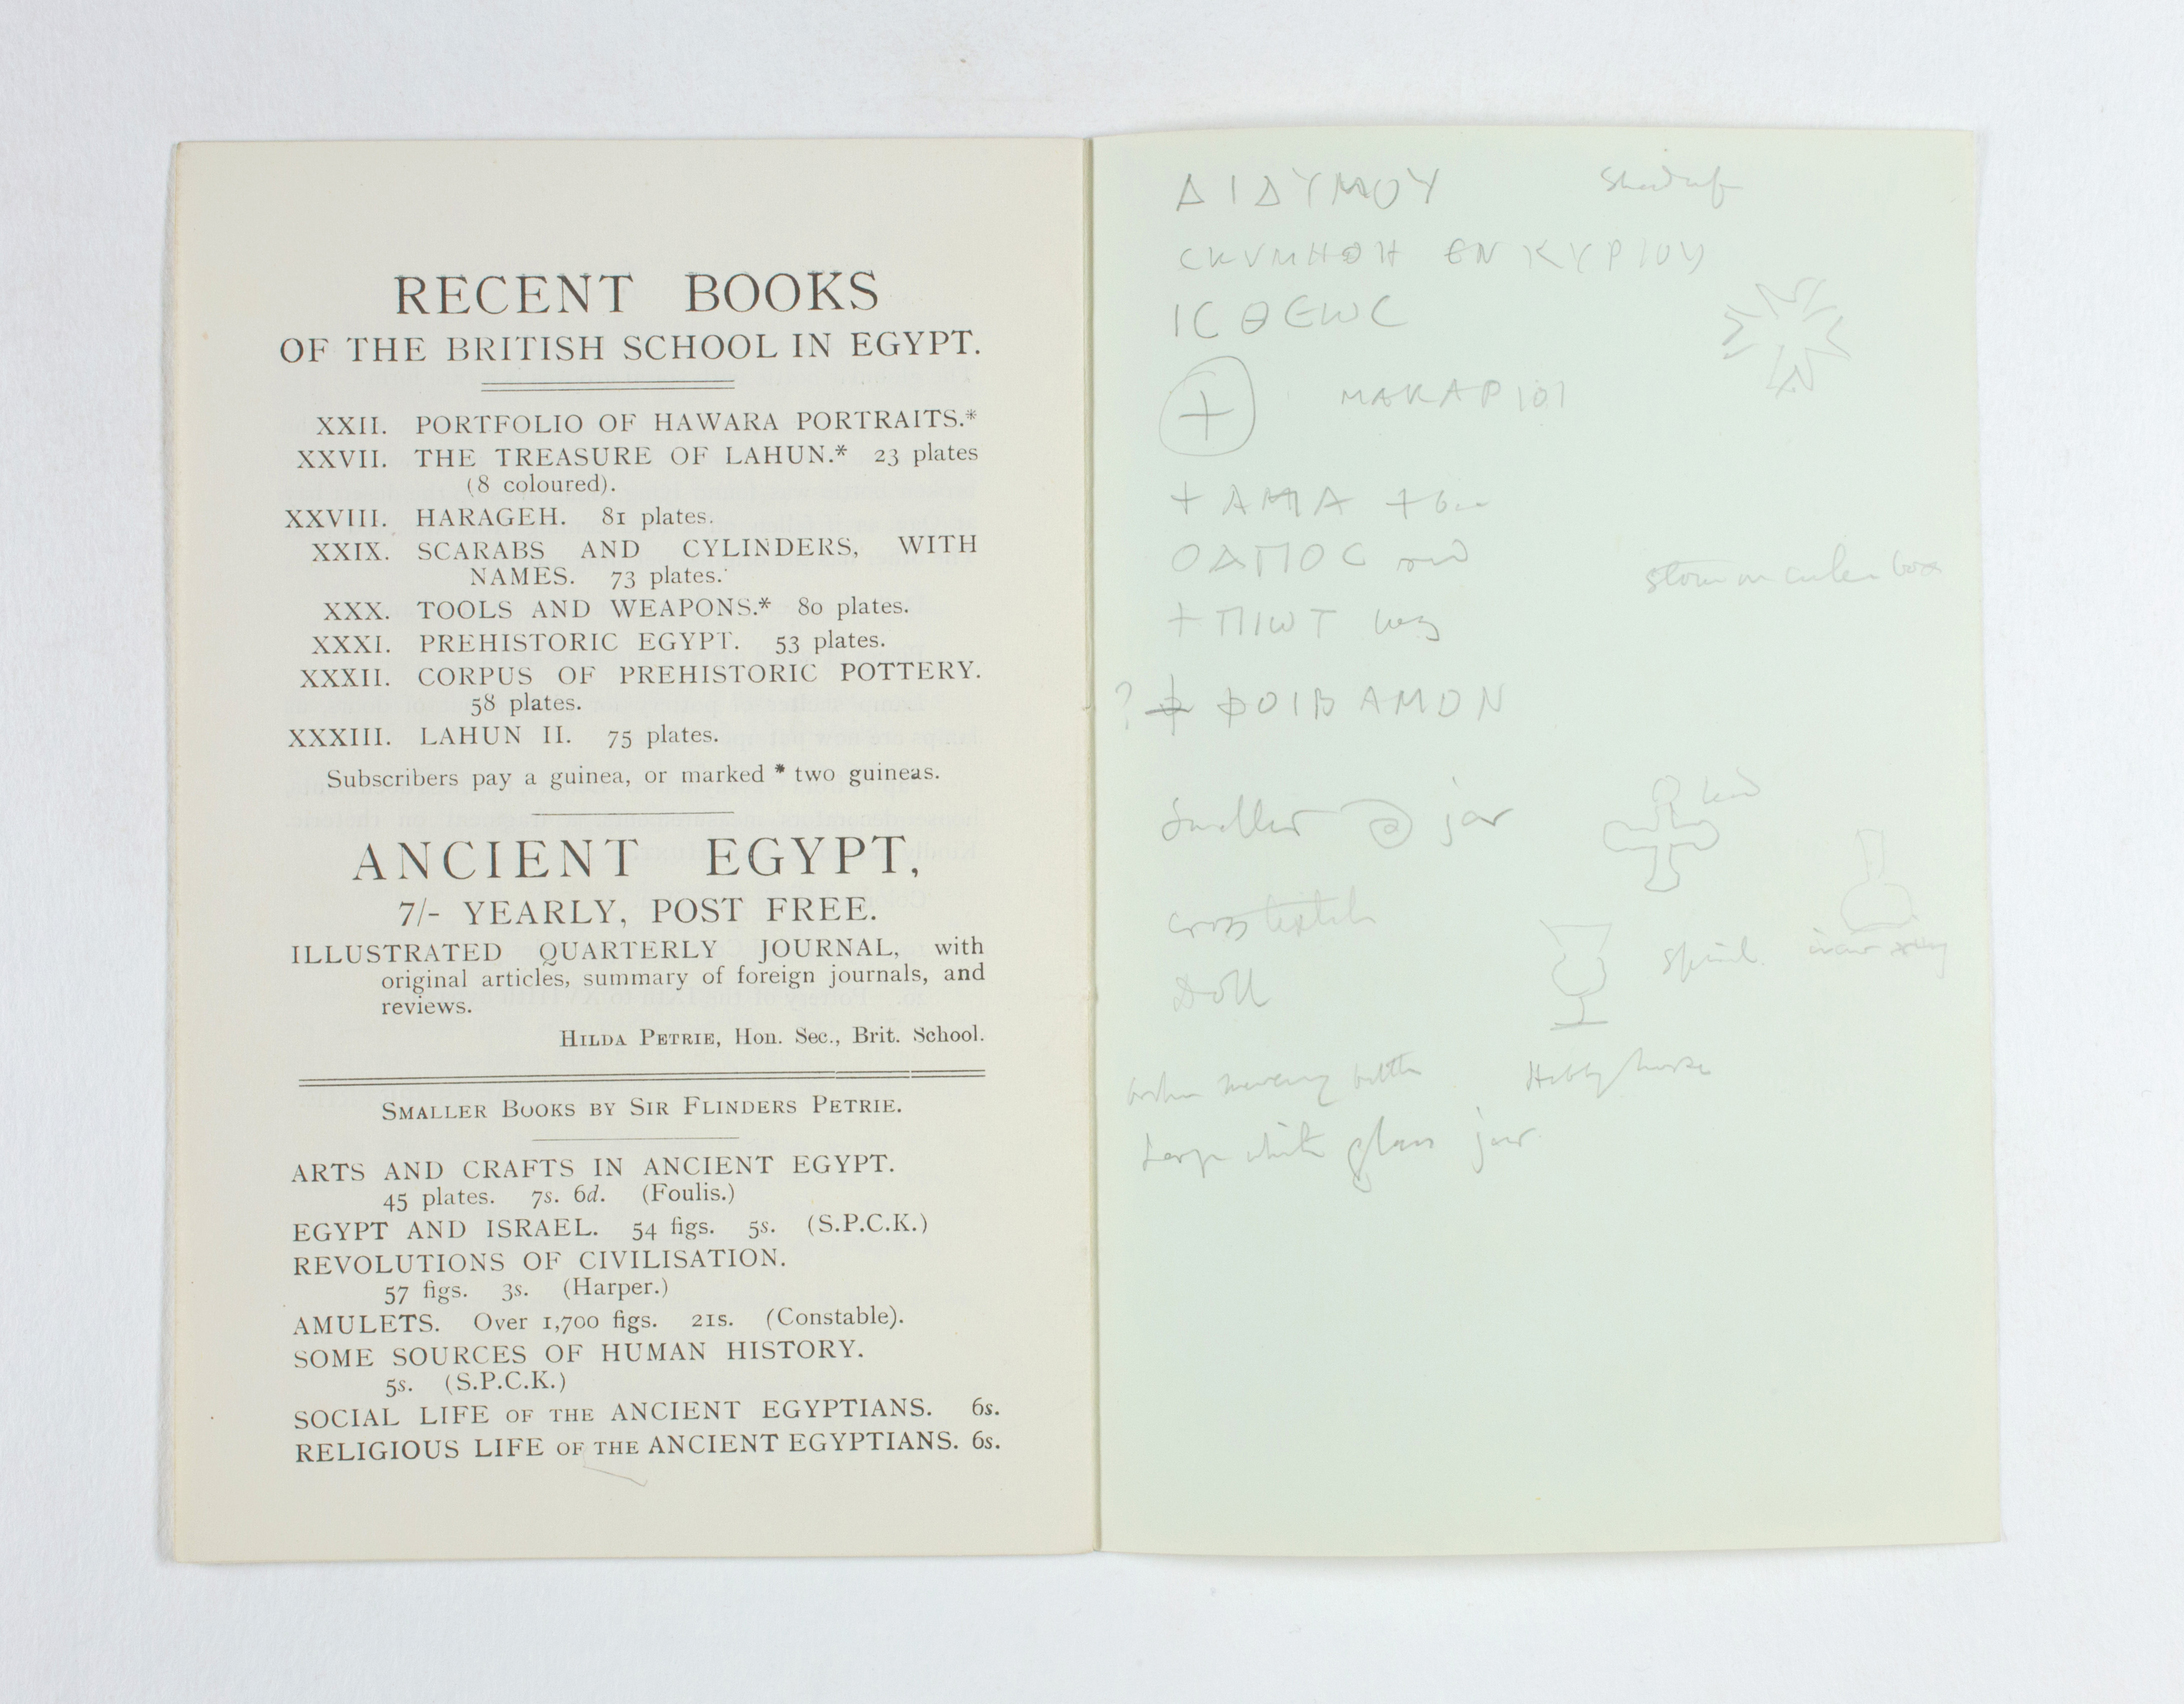 RECENT BOOKS
OF THE BRITISH SCHOOL IN EGYPT.
XXII. PORTFOLIO OF HAWARA PORTRAITS.*
XXVII. THE TREASURE OF LAHUN.* 23 plates
(8 coloured).
XXVIII. HARAGEH. 81 plates.
XXIX. SCARABS AND CYLINDERS, WITH
NAMES. 73 plates.
XXX. TOOLS AND WEAPONS.* 80 plates.
XXXI. PREHISTORIC EGYPT. 53 plates.
XXXII. CORPUS OF PREHISTORIC POTTERY.
58 plates.
XXXIII. LAHUN II. 75 plates.
Subscribers pay a guinea, or marked * two guineas.
ANCIENT EGYPT,
7/- YEARLY, POST FREE.
ILLUSTRATED QUARTERLY JOURNAL, with
original articles, summary of foreign journals, and
reviews.
HILDA PETRIE, Hon. Sec., Brit. School.
SMALLER BOOKS BY SIR FLINDERS PETRIE.
ARTS AND CRAFTS IN ANCIENT EGYPT.
45 plates. 7s. 6d. (Foulis.)
EGYPT AND ISRAEL. 54 figs. 5s. (S.P.C.K.)
REVOLUTIONS OF CIVILISATION.
57 figs. 3s. (Harper.)
AMULETS. Over 1,700 figs. 21s. (Constable).
SOME SOURCES OF HUMAN HISTORY.
5s. (S.P.C.K.)
SOCIAL LIFE OF THE ANCIENT EGYPTIANS. 6s.
RELIGIOUS LIFE OF THE ANCIENT EGYPTIANS. 6s.
ΔΙΔΥΜΟΥ Shaduf
ϹΚΥΜΗΘΗ ΕΝ ΚΥΡΙΟΥ
ΙϹ ΘΕѠϹ
ΜΑΚΑΡΙΟΙ
+ ΑΜΑ +
ΟΑΠΟϹ
+ ΠΙѠΤ
? ΦΟΙΒΑΜΟΝ
Smaller jar
cross textile
Doll
broken bottle Hobby horse
Large white glass jar